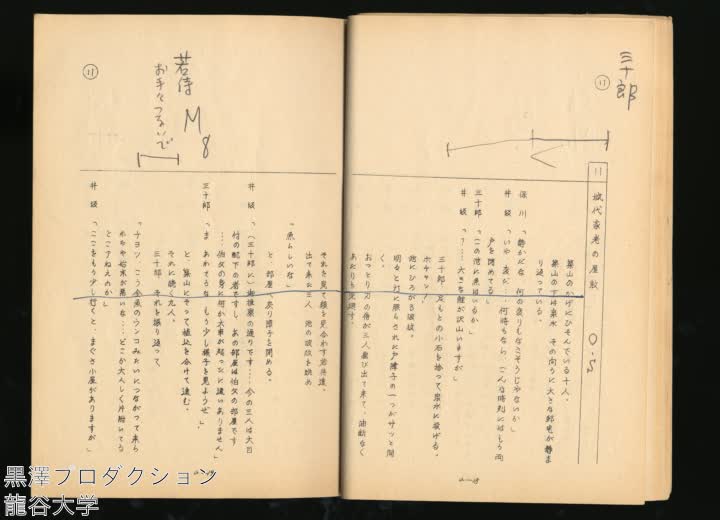 三十郎
11
11 城代家老の屋敷 O.S
築山のかげにひそんでいる十人。
築山の下は泉水 その向うに大きな邸宅が静ま
り返っている。
保川「静かだな 何の変りもなさそうじゃないか」
井坂「いや 変だ…何時もなら、こんな時刻にはもう雨
戸を閉めてる」
三十郎「この池に魚はいるか」
井坂「？…大きな鯉が沢山いますが」
三十郎、足もとの小石を拾って泉水に投げる。
ボチャン！
池にひろがる波紋。
明るく灯に照らされた障子の一つがサッと開
く。
おっとり刀の侍が三人飛び出て来て、油断なく
あたりを見廻す。
11
若侍 M8
お手々つないで
それを見て顔を見合わす若侍達。
出て来た三人 池の波紋を眺め
「魚らしいな」
と、部屋へ戻り障子を閉める。
井坂「（三十郎に）御推察の通りです…今の三人は大目
付の配下の者ですし あの部屋は伯父の部屋です
…伯父の身に何か大事が起ったに違いありません」
三十郎「まあわてるな もう少し様子を見ようぜ」
と、築山にそって植込を分けて進む。
それに続く九人。
三十郎、それを振り返って
「チョッ、こう金魚のウンコみたいにつながって来ら
れちゃ始末が悪いな…どこか大人しく片附いてる
とこァねえのか」
井坂「ここをもう少し行くと、まぐさ小屋がありますが」
黒澤プロダクション
龍谷大学